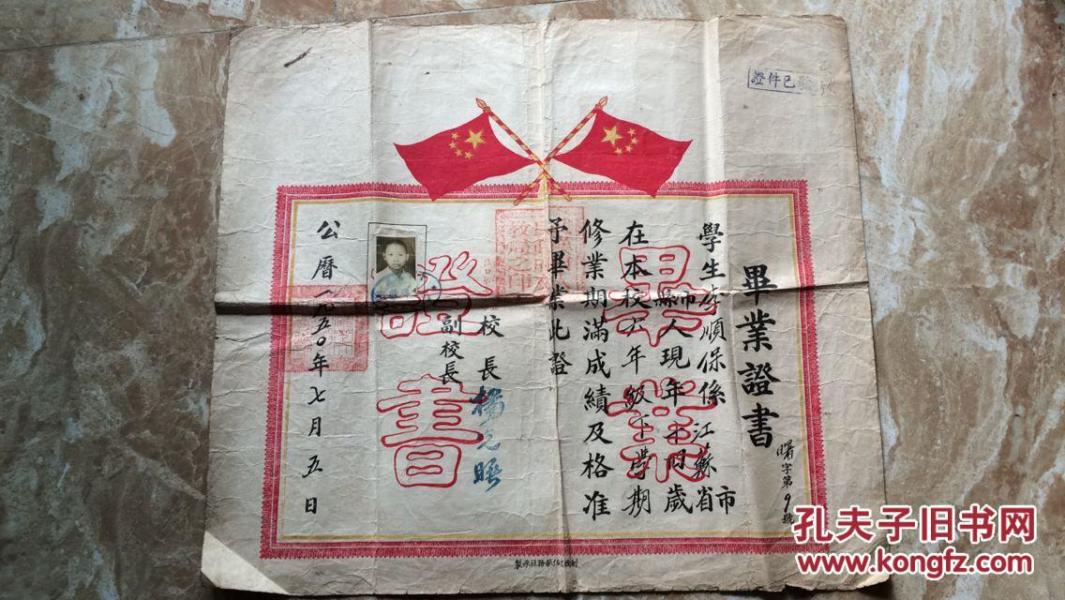 畢業證書
曙字第9號
學生李順保係江蘇省市
縣市人現年十四歲
在本校六年級下學期
修業期滿成績及格准
予畢業此證
校長楊元晤
副校長
公曆一九五〇年七月五日
畢業
證書
證件已驗
孔夫子旧书网
www.kongfz.com